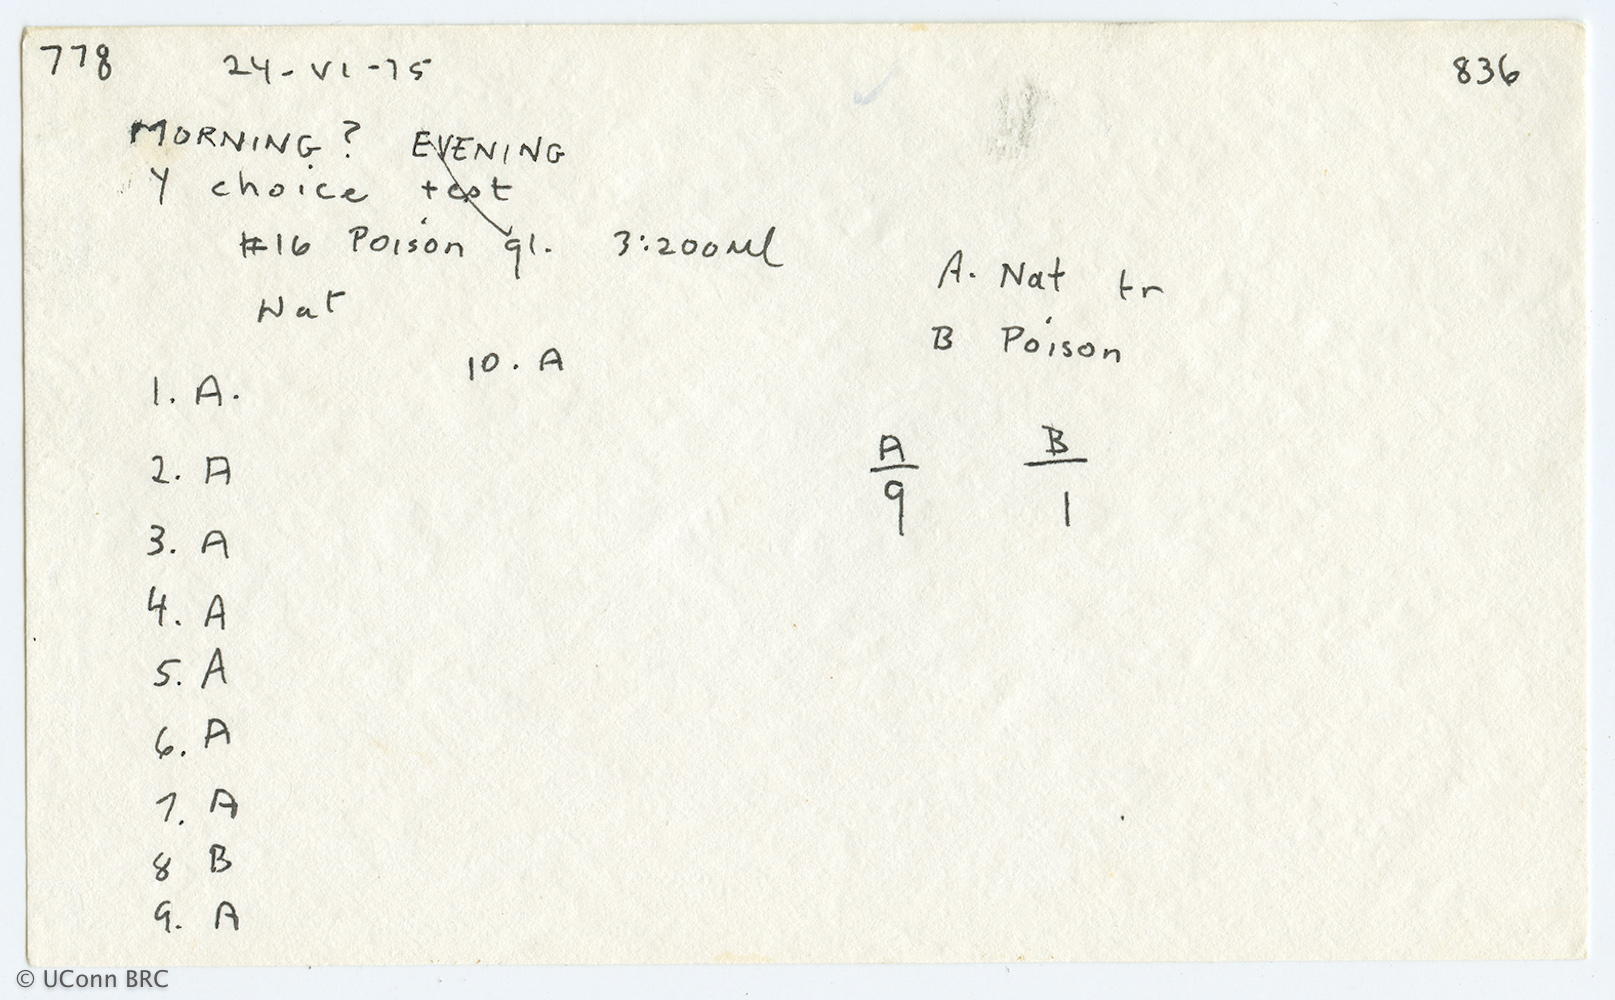 778 24-VI-75 836
MORNING? EVENING
Y choice test
#16 Poison gl. 3:200Ml
Nat
A. Nat tr
B Poison
10. A
1. A.
2. A
3. A
4. A
5. A
6. A
7. A
8 B
9. A
A B
9 1
© UConn BRC